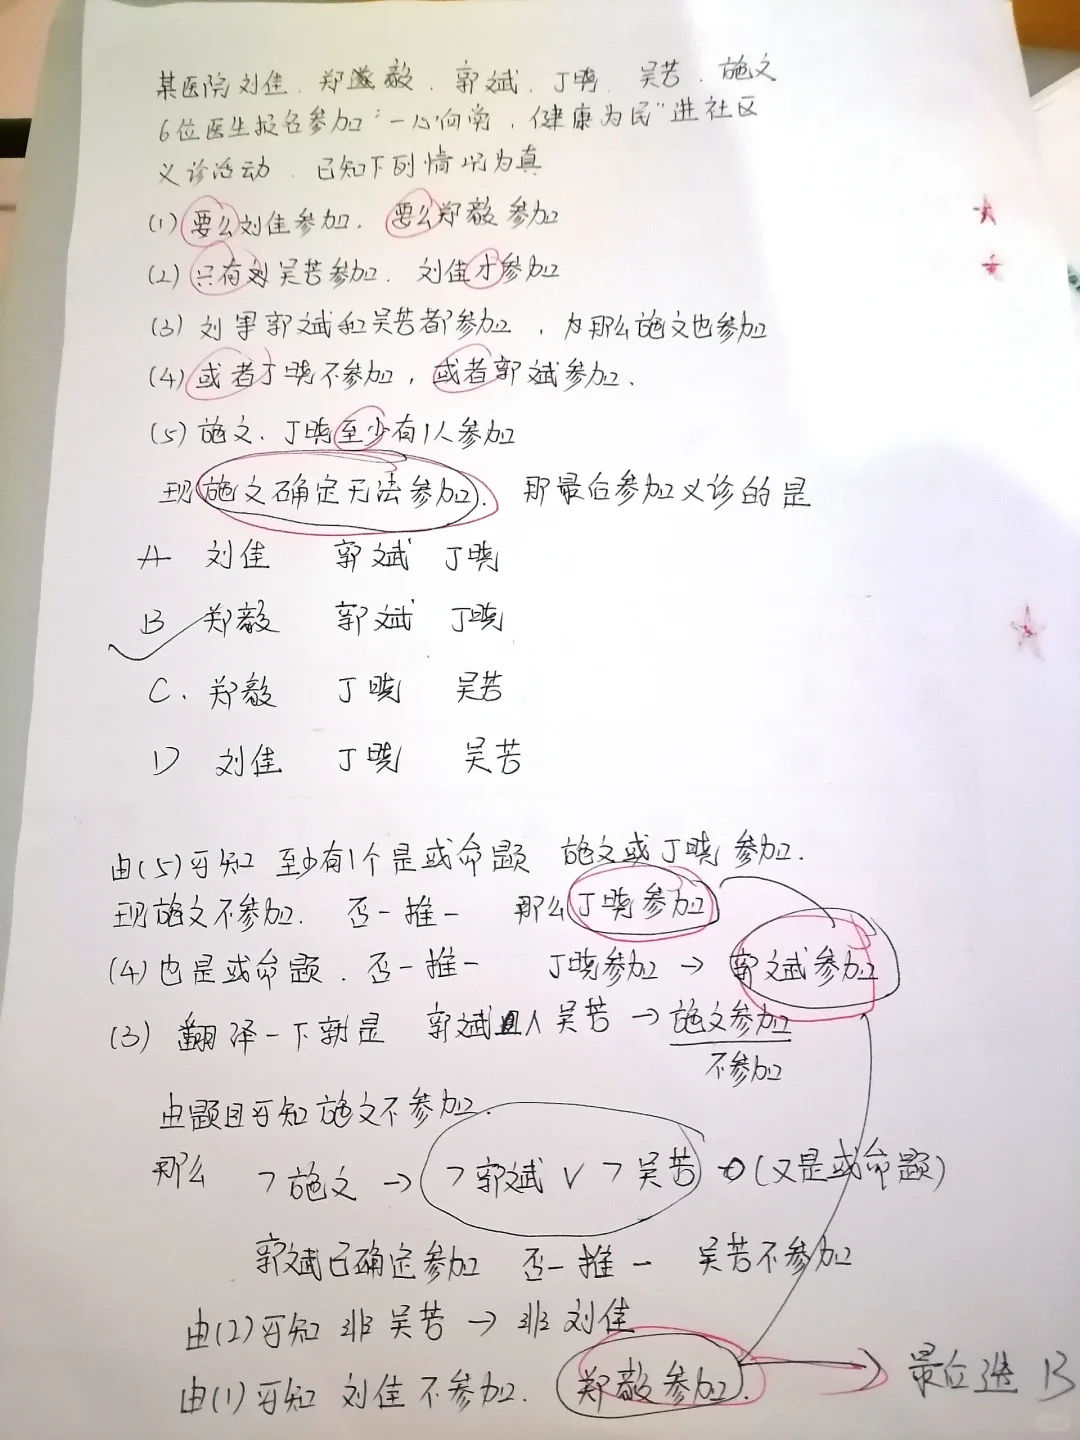 某医院刘佳、郑毅、郭斌、丁晓、吴苦、施文
6位医生报名参加“一心向党,健康为民”进社区
义诊活动、已知下列情况为真
(1)要么刘佳参加,要么郑毅参加
(2)只有吴苦参加、刘佳才参加
(3)如果郭斌和吴苦都参加,那么施文也参加
(4)或者丁晓不参加,或者郭斌参加.
(5)施文、丁晓至少有1人参加
现施文确定无法参加. 那最后参加义诊的是
A 刘佳 郭斌 丁晓
B 郑毅 郭斌 丁晓
C. 郑毅 丁晓 吴苦
D 刘佳 丁晓 吴苦
由(5)可知 至少有1个是或命题 施文或丁晓参加.
现施文不参加. 否一推一 那么丁晓参加
(4)也是或命题. 否一推一 丁晓参加→郭斌参加
(3)翻译一下就是 郭斌且吴苦→施文参加
不参加
由题目可知施文不参加.
那么 ㄱ施文→ㄱ郭斌∨ㄱ吴苦(又是或命题)
郭斌已确定参加 否一推一 吴苦不参加
由(2)可知 非吴苦→非刘佳
由(1)可知 刘佳不参加. 郑毅参加. → 最后选B